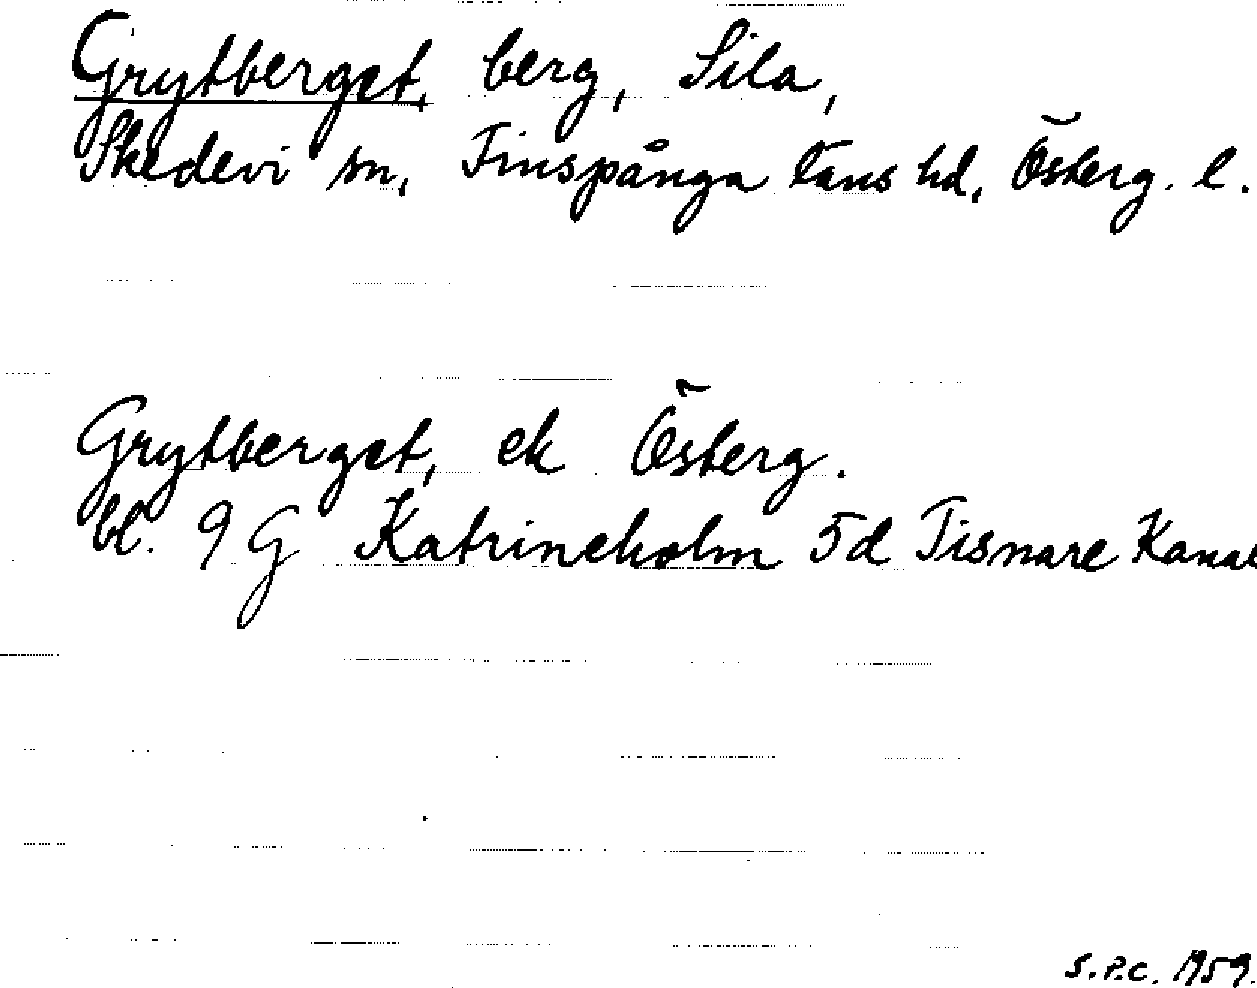 Grytberget, berg, Sila,
Skedevi sn, Finspånga läns hd, Österg. l.
Grytberget, ek Österg.
bl. 9 G Katrineholm 5d Tisnare Kanal
S.P.C. 1959.